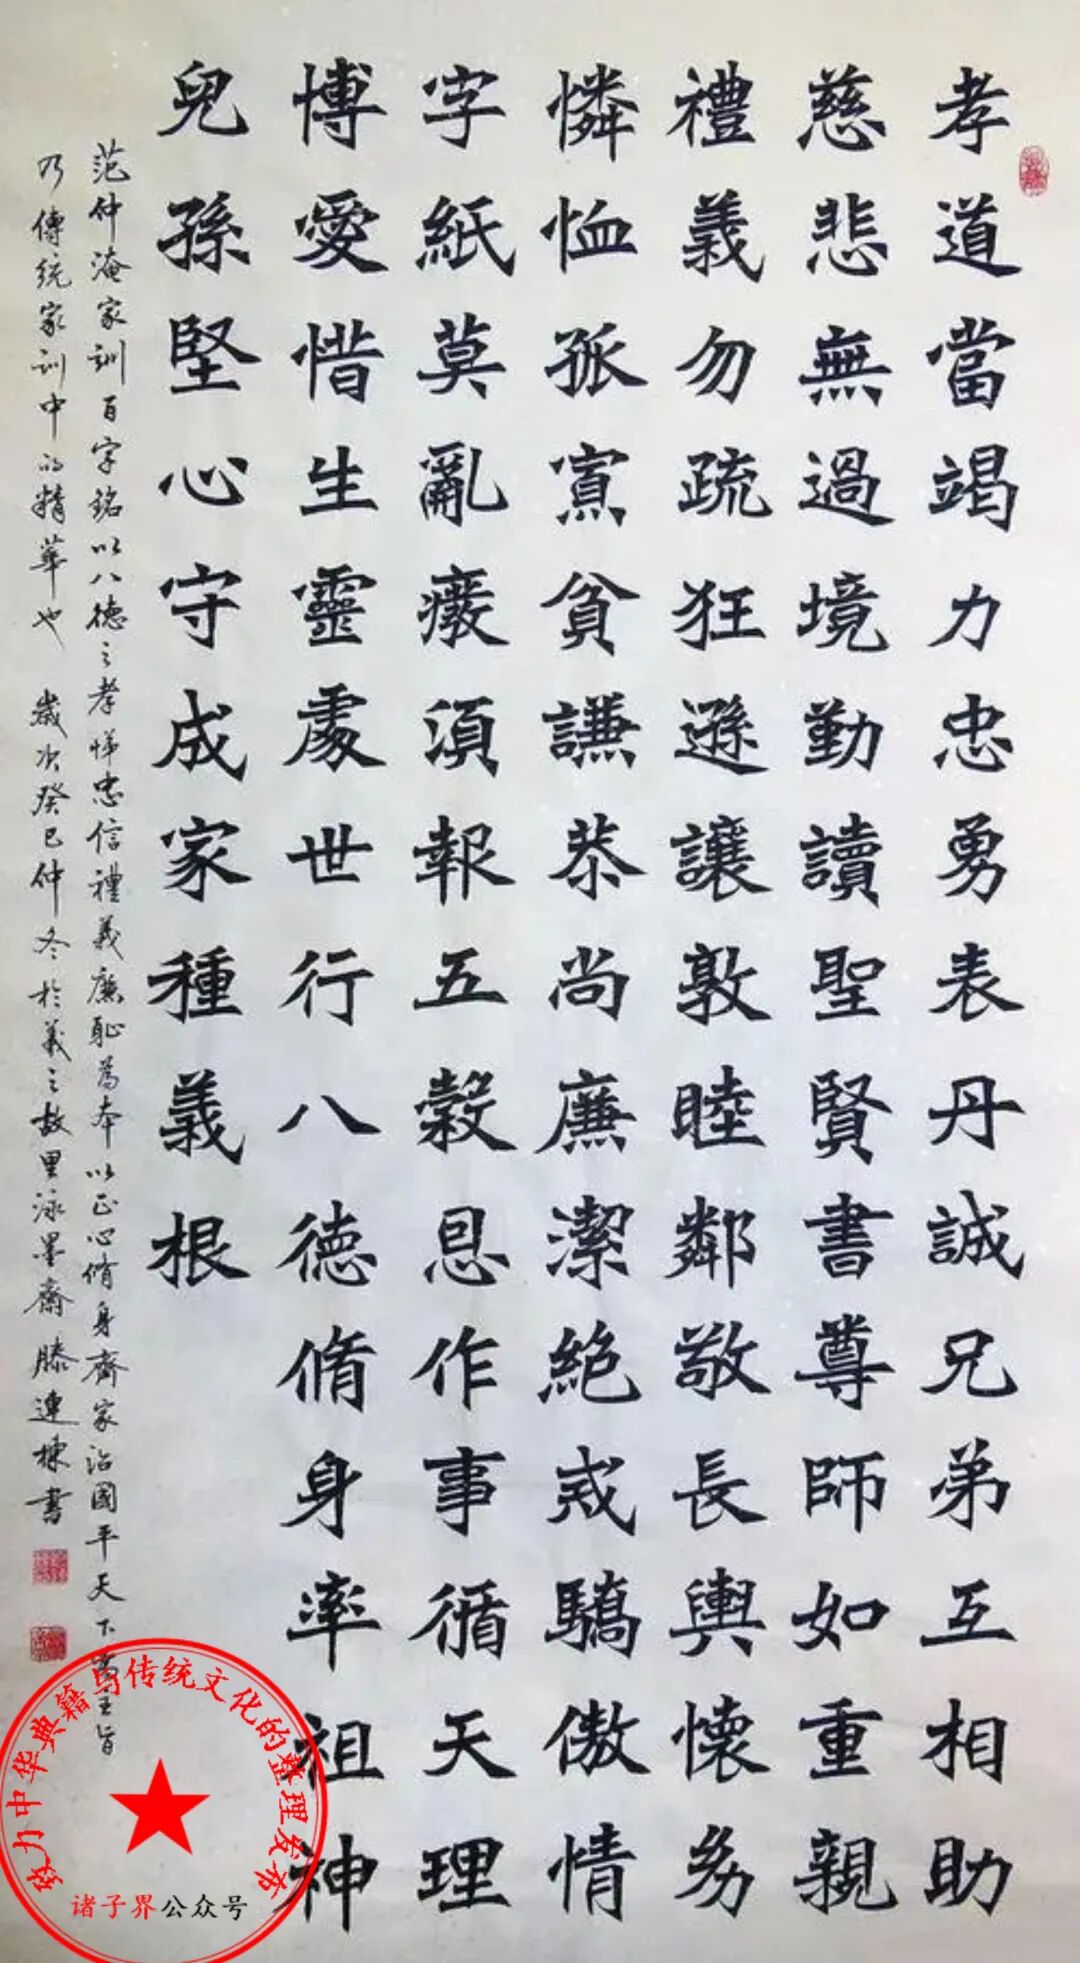 孝道當竭力忠勇表丹誠兄弟互相助
慈悲無過境勤讀聖賢書尊師如重親
禮義勿疏狂遜讓敦睦鄰敬長與懷幼
憐恤孤寡貧謙恭尚廉潔絕戒驕傲情
字紙莫亂廢須報五穀恩作事循天理
博愛惜生靈處世行八德脩身率祖神
兒孫堅心守成家種義根
范仲淹家訓百字銘以八德之孝悌忠信禮義廉恥為本以正心脩身齊家治國平天下為主旨
乃傳統家訓中的精華也 歲次癸巳仲冬於義之故里泳墨齋滕連棟書
致力中华典籍与传统文化的整理发布
诸子界公众号